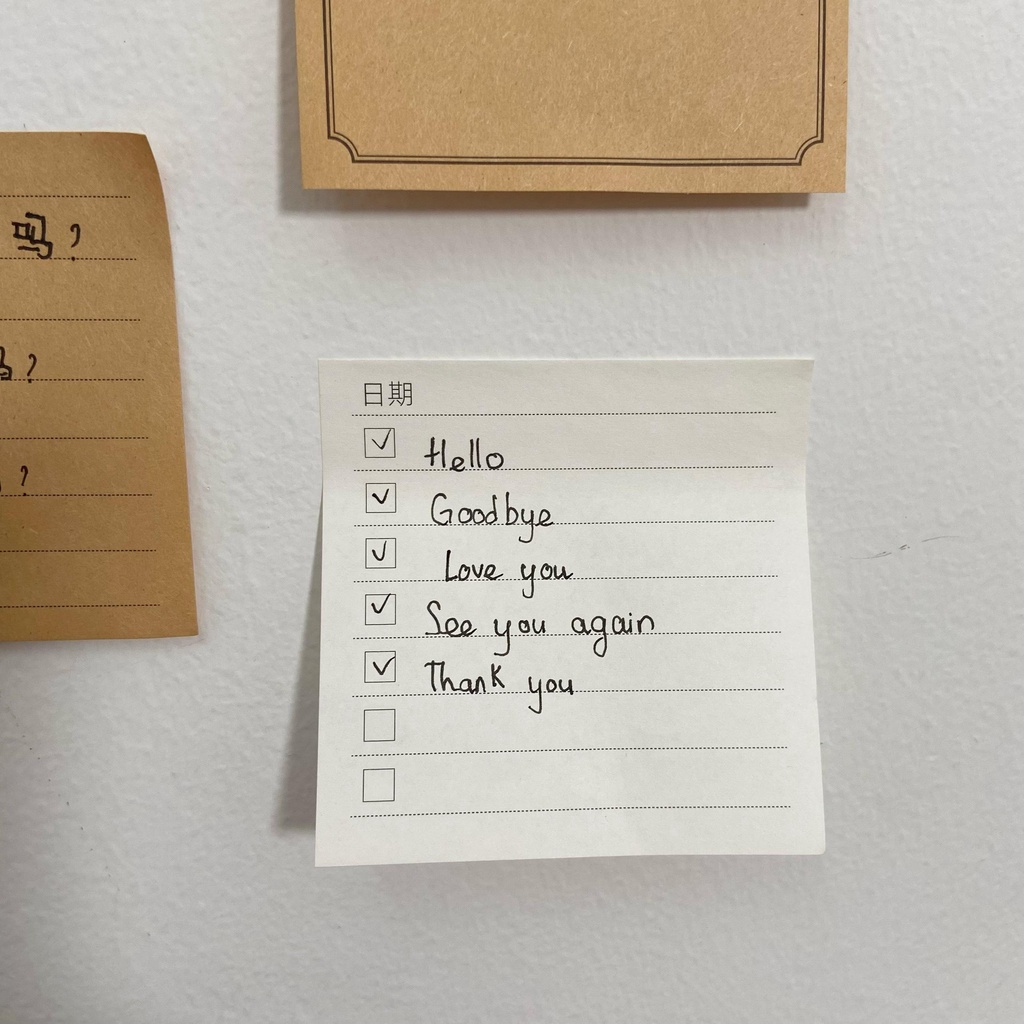 吗?
吗?
?
日期
Hello
Goodbye
Love you
See you again
Thank you